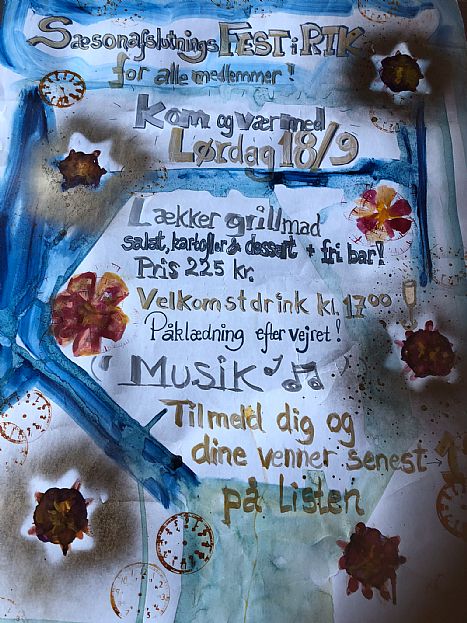 Sæsonafslutnings FEST i RIK
for alle medlemmer!
Kom og vær med
Lørdag 18/9
Lækker grillmad
salat, kartofler & dessert + fri bar!
Pris 225 kr.
Velkomstdrink kl. 17⁰⁰
Påklædning efter vejret!
MUSIK
Tilmeld dig og
dine venner senest
på Listen